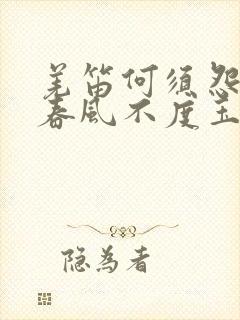 羌笛何须怨
春风不度玉
隐为者